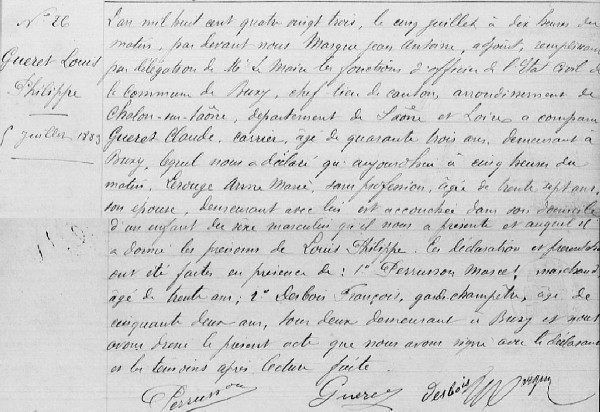 N° 26
Gueret Louis
Philippe
5 juillet 1883
L'an mil huit cent quatre vingt trois, le cinq juillet à dix heures du
matin, par devant nous Masque Jean Antoine, adjoint, remplissant
par délégation de M. le Maire les fonctions d'officier de l'Etat Civil de
la commune de Buxy, chef lieu de canton, arrondissement de
Chalon-sur-Saône, département de Saône et Loire a comparu
Gueret Claude, carrier, âgé de quarante trois ans, demeurant à
Buxy, lequel nous a déclaré qu'aujourd'hui à cinq heures du
matin, Anne Marie, sans profession, âgée de trente sept ans,
son épouse, demeurant avec lui est accouchée dans son domicile
d'un enfant du sexe masculin qu'il nous a présenté et auquel il
a donné les prénoms de Louis Philippe. Ces déclaration et présentation
ont été faites en présence de : 1° Perrusson Marcel, marchand
âgé de trente ans ; 2° Desbois François, garde-champêtre, âgé de
cinquante deux ans, tous deux demeurant à Buxy et nous
avons dressé le présent acte que nous avons signé avec le déclarant
et les témoins après lecture faite.
Perrusson Gueret Desbois